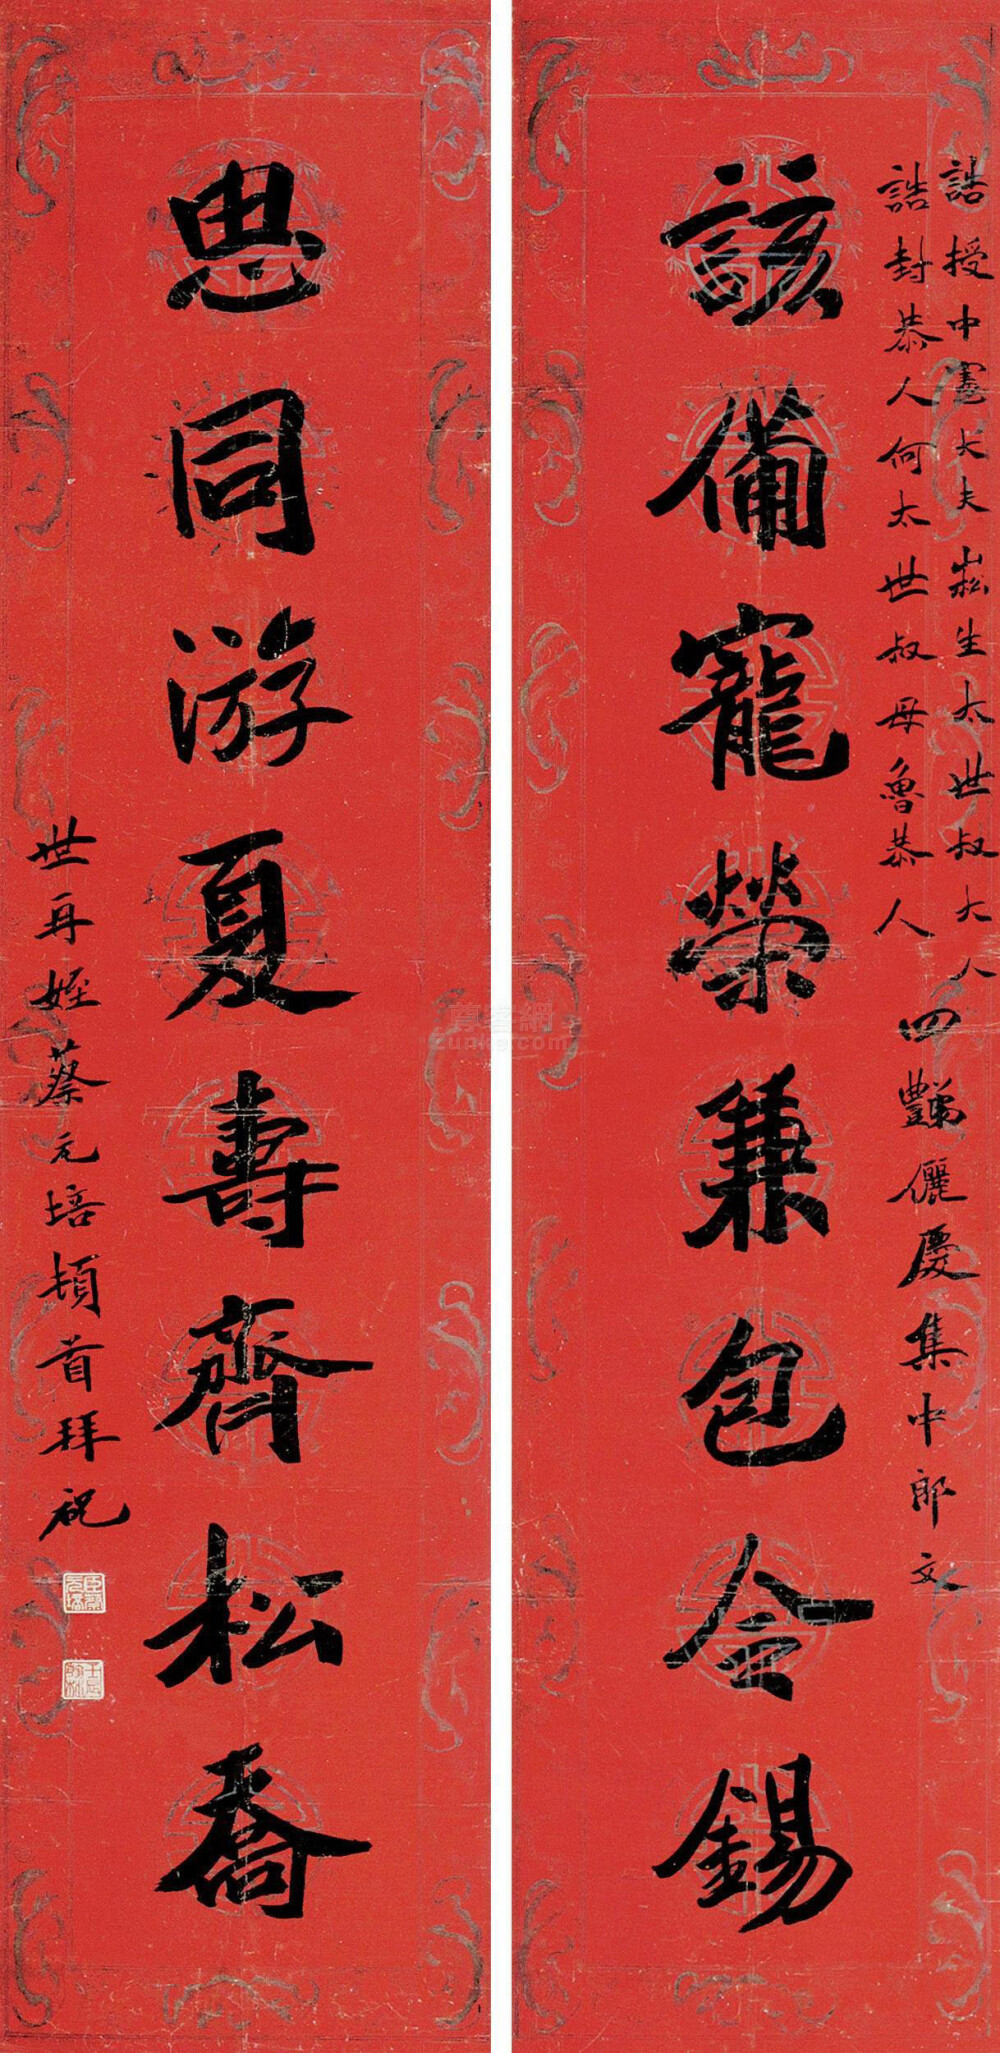 誥授中憲大夫崧生太世叔大人
誥封恭人何太世叔母魯恭人
四豑儷慶集中郎文
該備寵榮兼包令錫
思同游夏壽齊松喬
世再姪蔡元培頓首拜祝
臣蔡元培